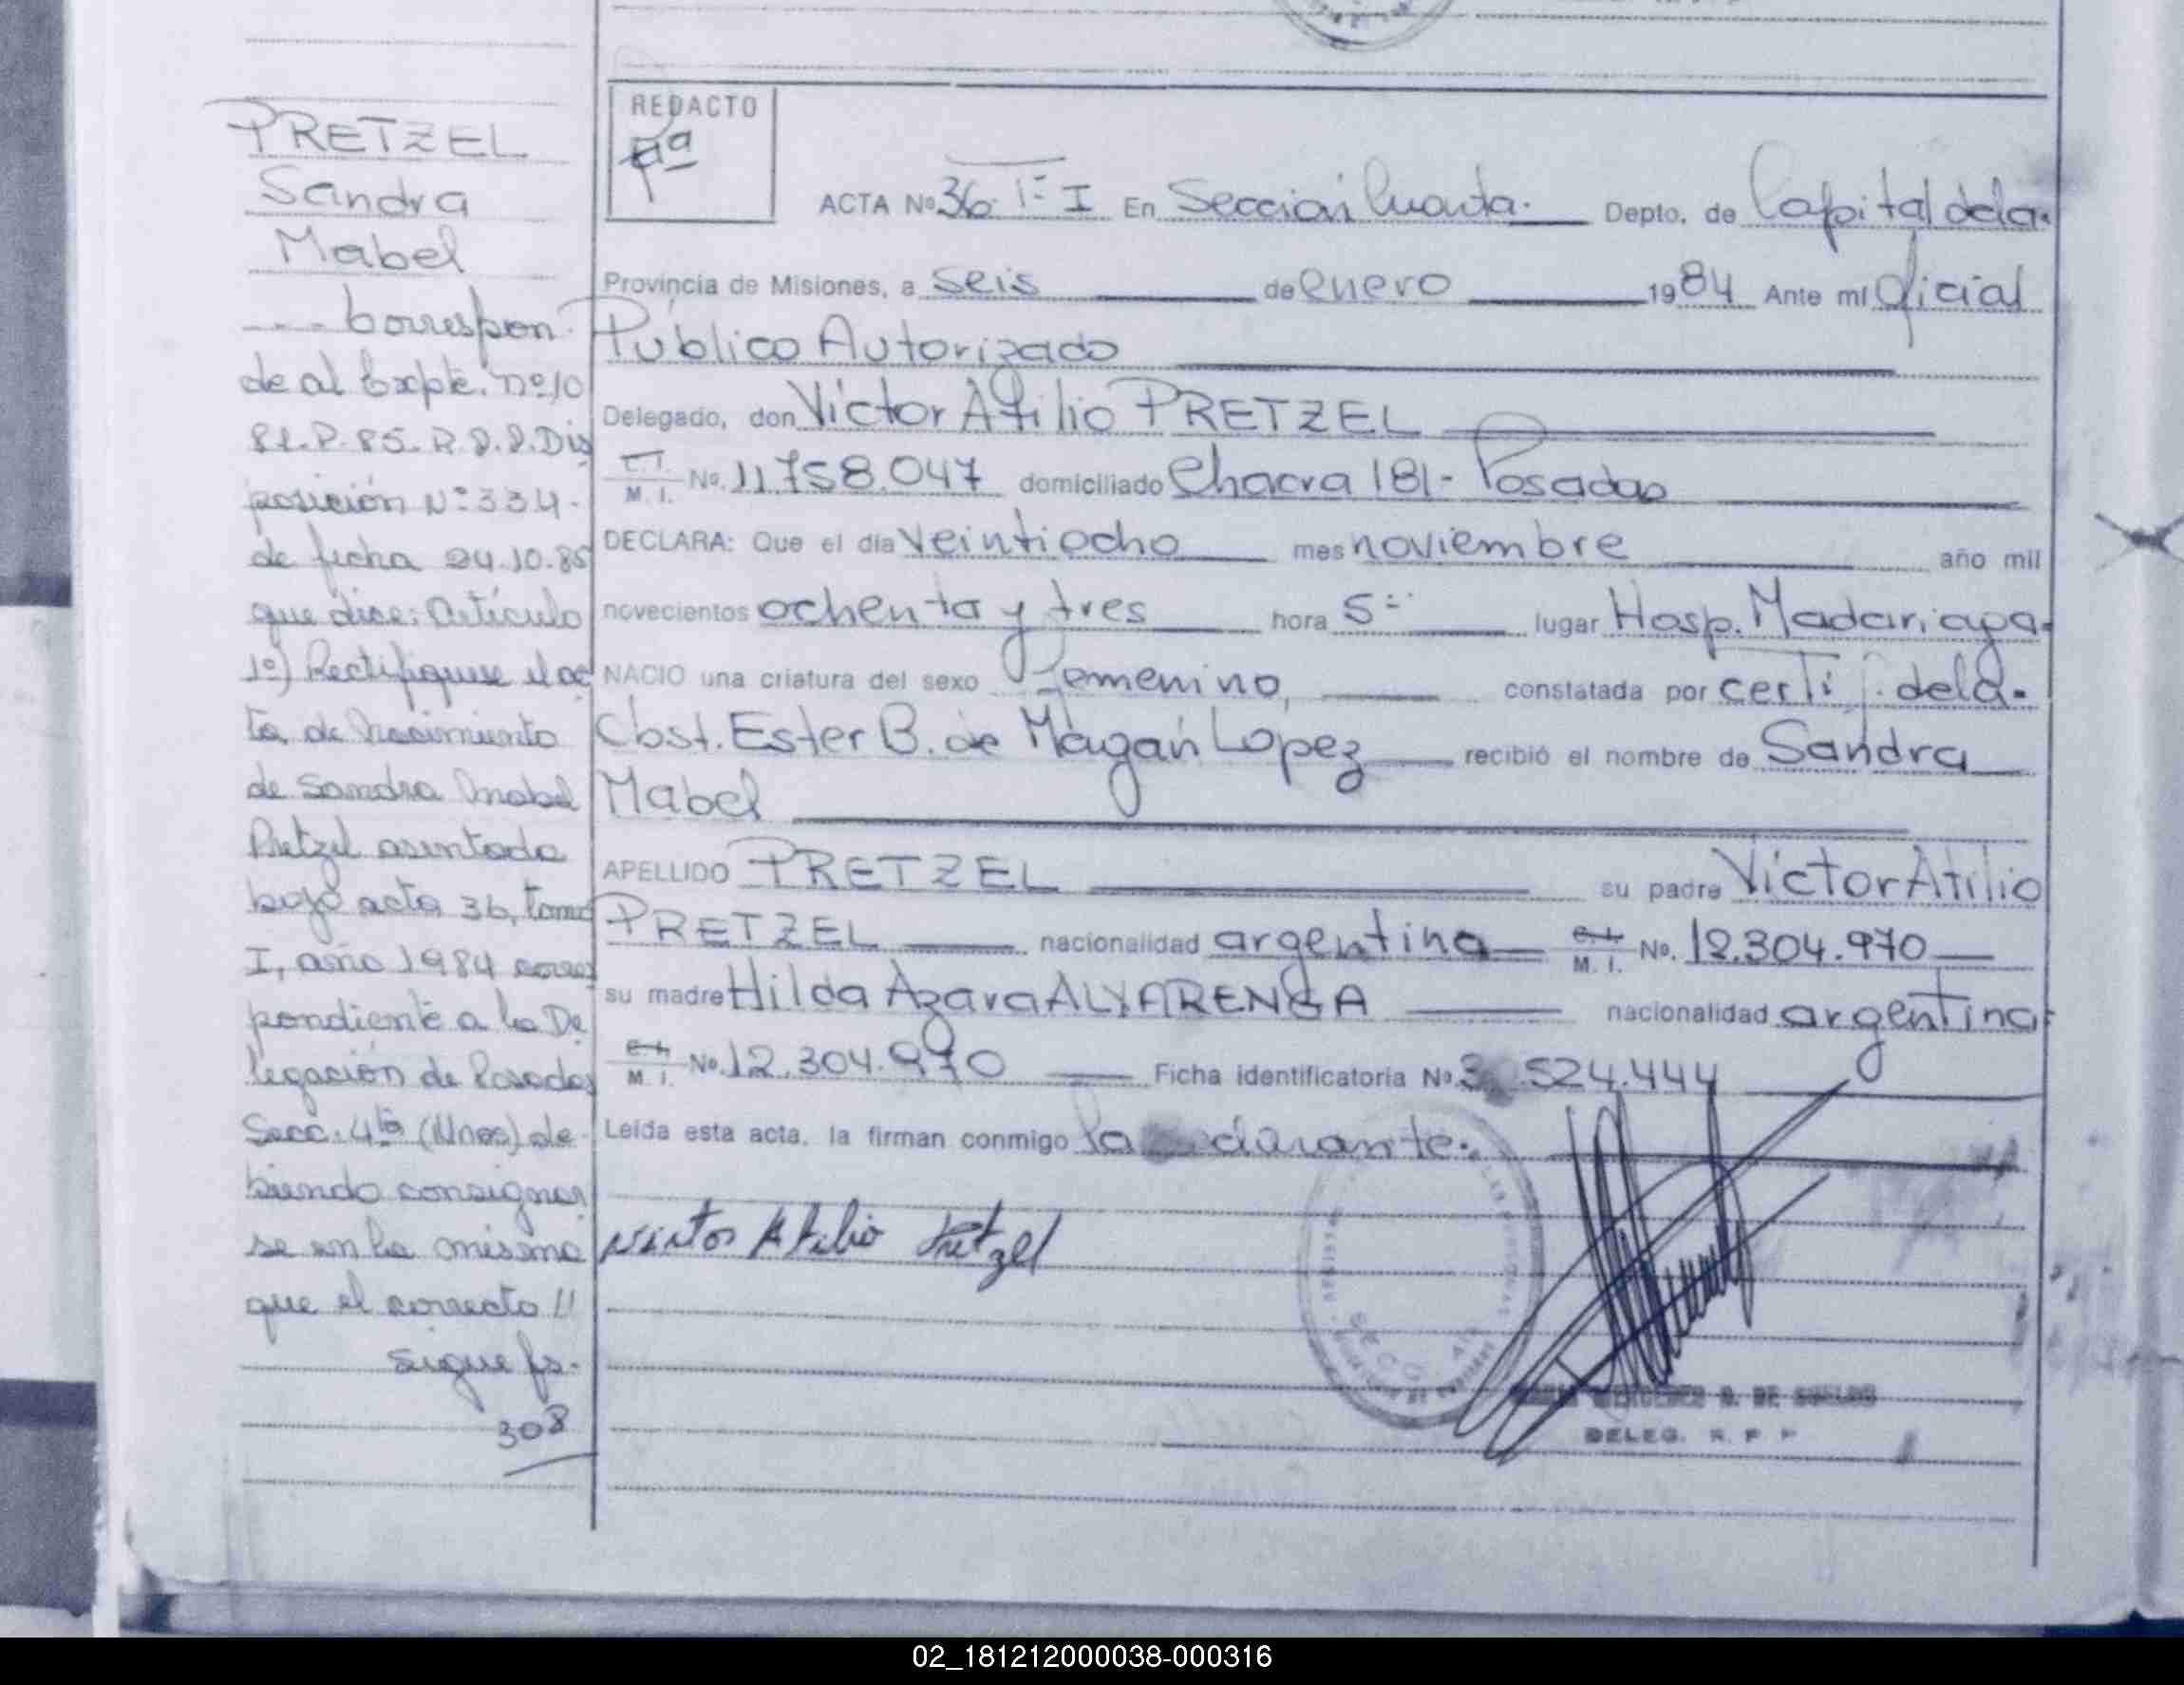 PRETZEL
Sandra
Mabel
--- Correspon
de al Expte. nº 10
81.P.85.R.P.P. Dis
posición Nº 334-
de fecha 24.10.85
que dice: Artículo
1º) Rectifiquese el ac
ta de Nacimiento
de Sandra Mabel
Pretzel asentada
bajo acta 36, tomo
I, año 1984 corres
pondiente a la De
legación de Posadas
Secc. 4ta (Mnes) de
biendo consignar
se en la misma
que el correcto //
sigue fs.
308
REDACTO
ACTA Nº 36 Tº I En Sección Cuarta. Depto. de Capital dela
Provincia de Misiones, a seis de enero 1984 Ante mí Oficial
Público Autorizado
Delegado, don Víctor Atilio PRETZEL
M. I. No. 11.758.047 domiciliado Chacra 181- Posadas
DECLARA: Que el día veintiocho mes noviembre año mil
novecientos ochenta y tres hora 5 lugar Hosp. Madariaga
NACIO una criatura del sexo Femenino, constatada por certif. dela
Obst. Ester B. de Magán López recibió el nombre de Sandra
Mabel
APELLIDO PRETZEL su padre Víctor Atilio
PRETZEL nacionalidad argentina M. I. No. 12.304.970
su madre Hilda Azara ALVARENGA nacionalidad argentina
M. I. No. 12.304.970 Ficha identificatoria No. 524.444
Leída esta acta, la firman conmigo
Victor Atilio Pretzel
DE
DELEG. R. P P
02_181212000038-000316